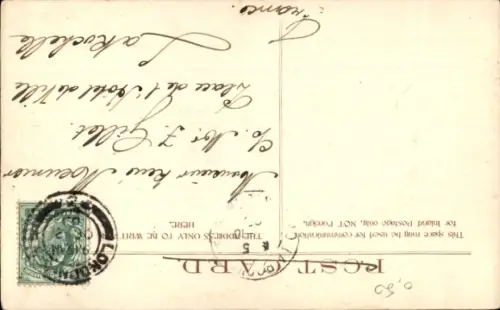 POST CARD.
This space may be used for communication
for Inland Postage only, NOT Foreign.
THE ADDRESS ONLY TO BE WRITTEN
HERE.
LONDON
Monsieur René Meunier
c/o Mor J. Gillet.
Place de l'Hotel de Ville
La Rochelle
France.
0,50